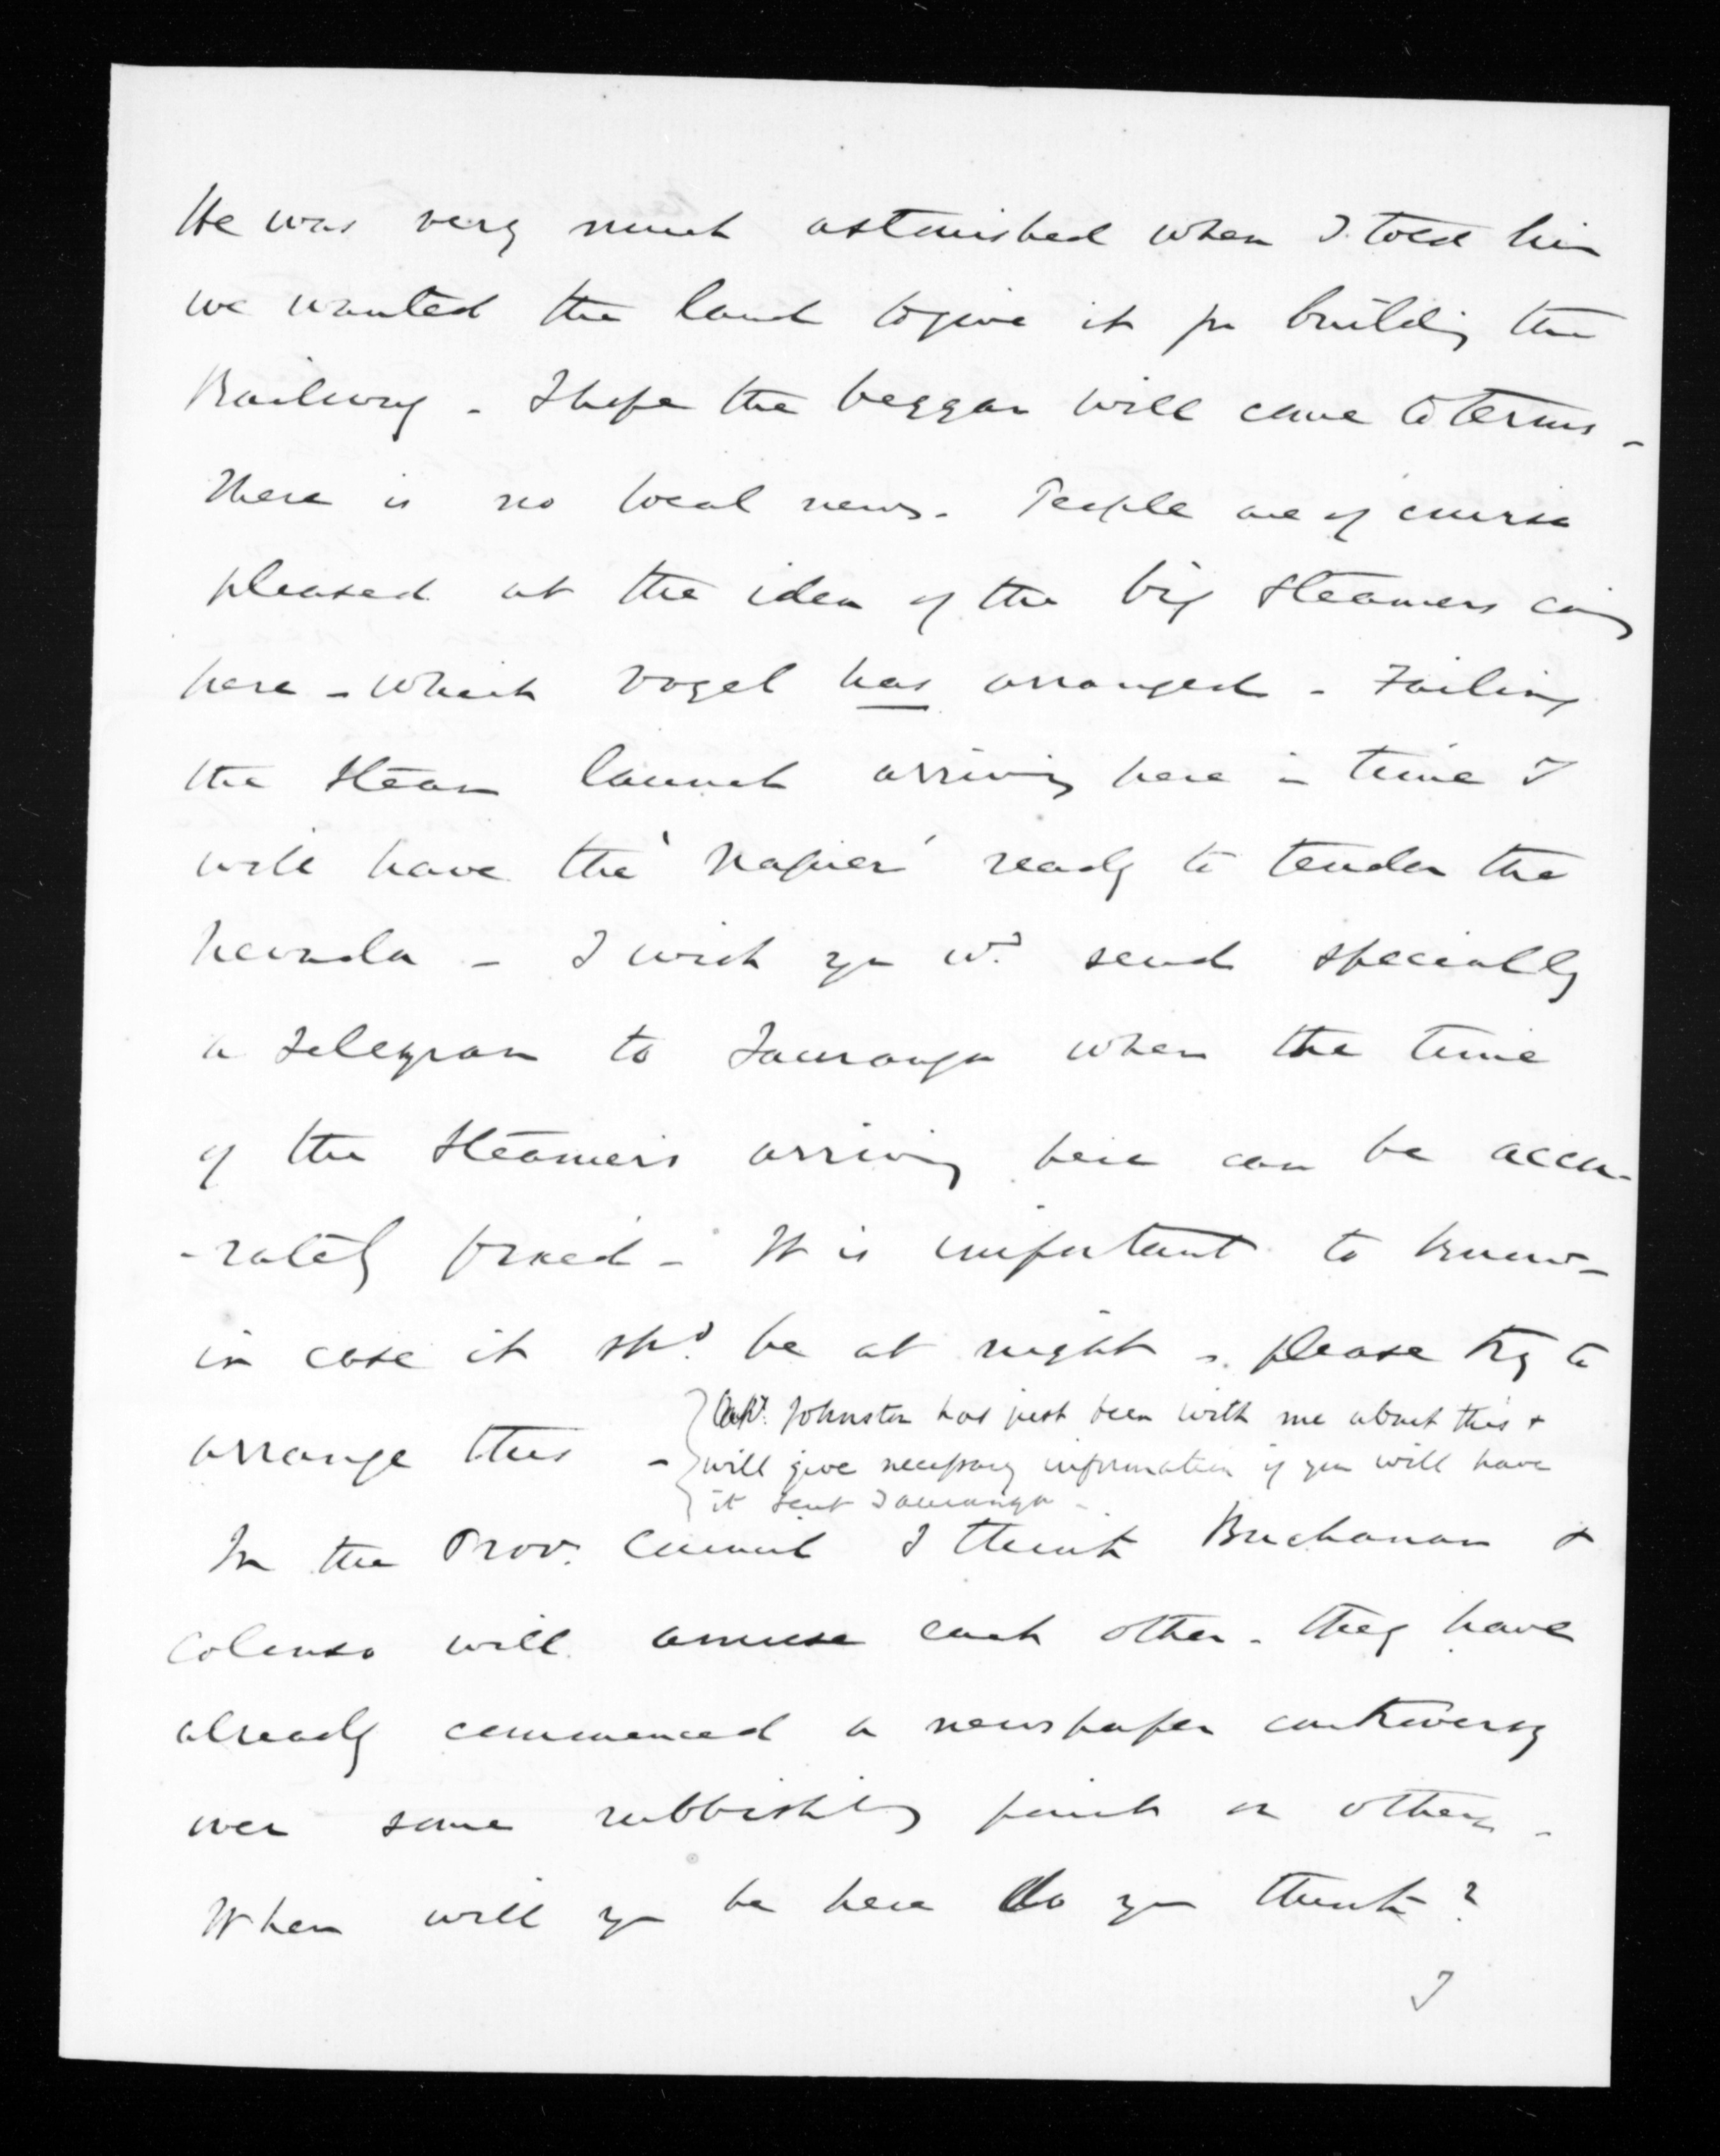 He was very much astonished when I told him
we wanted the land to give it for building the
Railway - I hope the beggar will come to terms -
There is no local news. People are of course
pleased at the idea of the big Steamers coming
here - which Vogel has arranged - Failing
the Steam launch arriving here in time I
will have the 'Napier' ready to tender the
Nevada - I wish you wd. send specially
a Telegram to Tauranga when the time
of the Steamers arriving here can be accu-
-rately fixed - It is important to know -
in case it shd. be at night - please try to
arrange this -
Capt. Johnston has just been with me about this +
will give necessary information if you will have
it sent Tauranga -
In the Prov. Council I think Buchanan +
Colenso will amuse each other - they have
already commenced a newspaper controversy
over some rubbishing point or other -
When will you be here do you think?
I